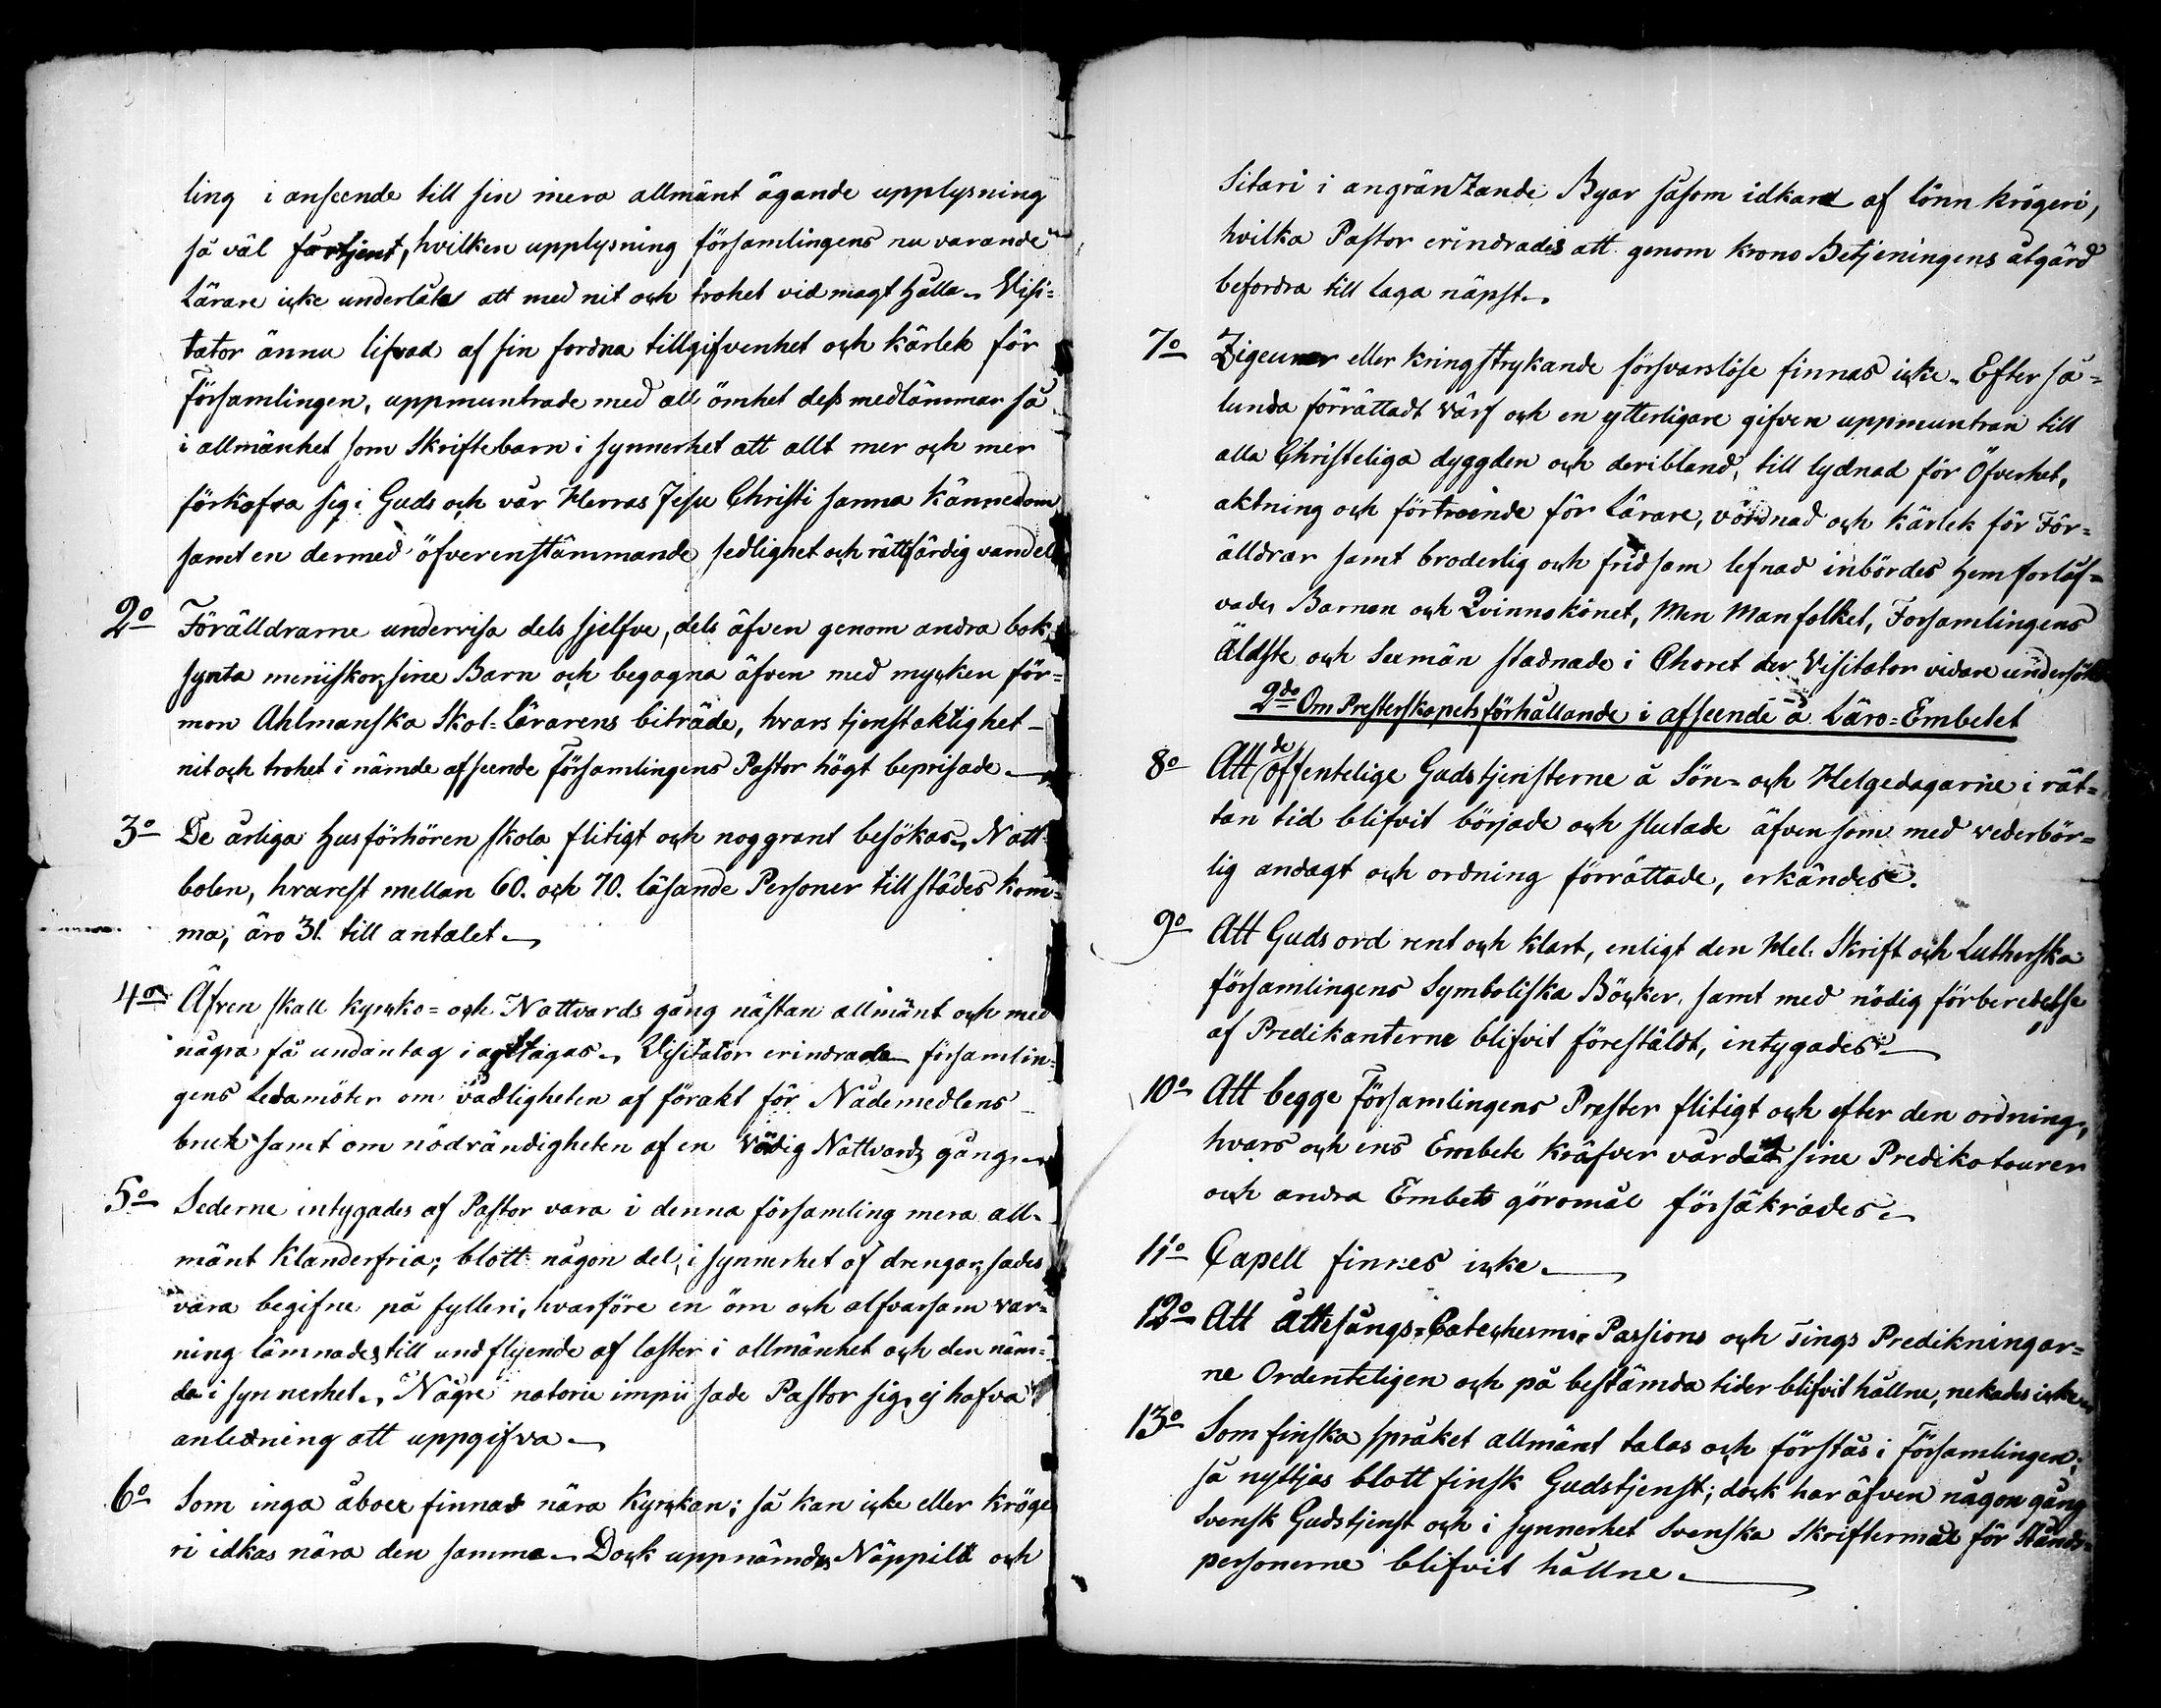 ling i anseende till sin mera allmänt ägande upplysning
så väl förtjent, hvilken upplysning församlingens nu varande
Lärare icke underlåta att med nit och trohet vid magt hålla. Visi=
tator ännu lifvad af sin fordna tillgifvenhet och kärlek för
Församlingen, uppmuntrade med all ömhet dess medlämmar så
i allmänhet som Skriftebarn i synnerhet att allt mer och mer
förkofra sig i Guds och vår Herras Jesu Christi sanna kännedom
samt en dermed öfverenstämmande sedlighet och rättfärdig vandel
2o Förälldrarne undervisa dels sjelfve, dels äfven genom andra bok=
synta menniskor, sine Barn och begagna äfven med mycken för=
mon Ahlmanska Skol=Lärarens biträde, hvars tjenstaktighet
nit och trohet i nämde afseende Församlingens Pastor högt beprisade.
3o De årliga Husförhören skola flitigt och noggrant besökas. Natt
bolen, hvarest mellan 60. och 70. läsande Personer tillstädes kom=
ma, äro 31. till antalet.
4o Äfven skall kyrcko= och Nattvards gång nästan allmänt och med
några få undantag i agttagas. Visitator erindrade församlin=
gens Ledamöter om vådligheten af förakt för Nådemedlens
bruk samt om nödvändigheten af en värdig Nattvards gång.
5o Sederne intygades af Pastor vara i denna församling mera all=
mänt Klanderfria; blott någon del, i synnerhet af drengar, sades
vara begifne på fylleri, hvarföre en öm och alfvarsam var=
ning lämnades till undflyende af laster i allmänhet och den näm=
da i synnerhet. Någre notorie impii sade Pastor sig ej hafva
anledning att uppgifva.
6o Som inga åboer finnas nära Kyrckan; så kan icke eller kröge
ri idkas nära den samma. Dock uppnämdes Näppilä och
Sitari i angränzande Byar såsom idkare af lönn krögeri,
hvilka Pastor erindrades att genom krono Betjeningens åtgärd
befordra till laga näpst.
7o Zigeuner eller kringstrykande försvarslöse finnas icke. Efter så=
lunda förrättadt värf och en ytterligare gifven uppmuntran till
alla Christeliga dyggder och deribland, till lydnad för Öfverhet,
aktning och förtroende för Lärare, vördnad och kärlek för För=
älldrar samt broderlig och fridsam lefnad inbördes hemforlåf=
vades Barnen och Qvinnokönet, Men Manfolket, Forsamlingens
Äldste och Sexmän stadnade i Choret der Visitator vidare undersökte
2do Om Presterskapets förhållande i afseende å Läro=Embetet
8o Att de offentelige Gudstjensterne å Sön= och Helgedagarne i rät=
tan tid blifvit började och slutade äfvensom med vederbör=
lig andagt och ordning förrättade, erkändes.
9o Att Guds ord rent och klart, enligt den Hel. Skrift och Lutherska
församlingens Symboliska Böcker, samt med nödig förberedelse
af Predikanterne blifvit föreställdt, intygades.
10o Att begge Församlingens Prester flitigt och efter den ordning,
hvars och ens Embete kräfver vårdat sine Prediko tourer
och andra Embets göromål försäkrades.
11o Capell finnes icke.
12o Att Åttesångs= Catechesmi= Passions och Tings Predikningar=
ne Ordenteligen och på bestämda tider blifvit hållne, nekades icke.
13o Som finska språket allmänt talas och förstås i Församlingen;
så nyttjas blott finsk Gudstjenst; dock har äfven någon gång
Svensk Gudstjenst och i synnerhet Svenska Skriftermål för Stånds=
personerne blifvit hållne.